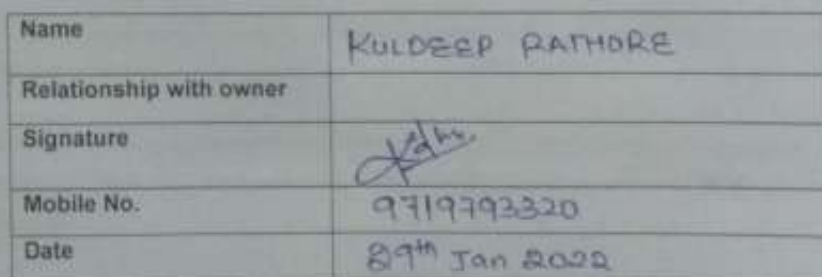 Name KULDEEP RATHORE
Relationship with owner
Signature
Mobile No. 9719793320
Date 29th Jan 2022